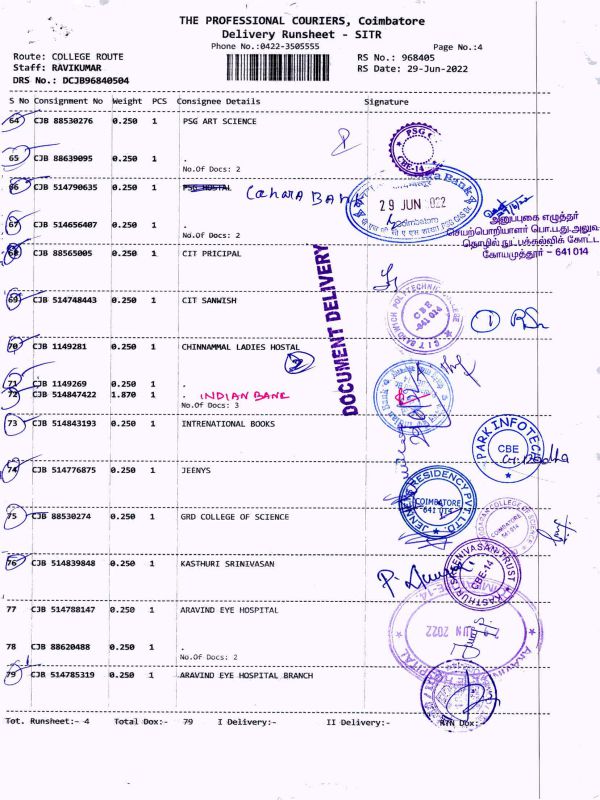 THE PROFESSIONAL COURIERS, Coimbatore
Delivery Runsheet - SITR
Phone No.:0422-3505555
Page No.:4
Route: COLLEGE ROUTE
RS No.: 968405
Staff: RAVIKUMAR
RS Date: 29-Jun-2022
DRS No.: DCJB96840504
S No Consignment No Weight PCS Consignee Details Signature
64 CJB 88530276 0.250 1 PSG ART SCIENCE
PSG
CBE-14
65 CJB 88639095 0.250 1 .
No.Of Docs: 2
66 CJB 514790635 0.250 1 PSG HOSTAL Canara Bank
29 JUN 2022
67 CJB 514656407 0.250 1 .
No.Of Docs: 2
அனுப்புகை எழுத்தர்
செயற்பொறியாளர் பொ.ப.து.அலுவ
தொழில் நுட்பக்கல்விக் கோட்ட
கோயமுத்தூர் - 641 014
68 CJB 88565005 0.250 1 CIT PRICIPAL
DOCUMENT DELIVERY
69 CJB 514748443 0.250 1 CIT SANWISH
CIT SANDWICH POLYTECHNIC COLLEGE
CBE
641 014
70 CJB 1149281 0.250 1 CHINNAMMAL LADIES HOSTAL
2
71 CJB 1149269 0.250 1 .
72 CJB 514847422 1.870 1 . INDIAN BANK
No.Of Docs: 3
73 CJB 514843193 0.250 1 INTRENATIONAL BOOKS
PARK INFOTECH
CBE
74 CJB 514776875 0.250 1 JEENYS
JENNEYS RESIDENCY PVT. LTD.
COIMBATORE
641 014
75 CJB 88530274 0.250 1 GRD COLLEGE OF SCIENCE
76 CJB 514839848 0.250 1 KASTHURI SRINIVASAN
KASTHURI SREENIVASAN TRUST
CBE-14
77 CJB 514788147 0.250 1 ARAVIND EYE HOSPITAL
JUN 2022
78 CJB 88620488 0.250 1 .
No.Of Docs: 2
79 CJB 514785319 0.250 1 ARAVIND EYE HOSPITAL BRANCH
Tot. Runsheet:- 4 Total Dox:- 79 I Delivery:- II Delivery:- RTN Dox:-